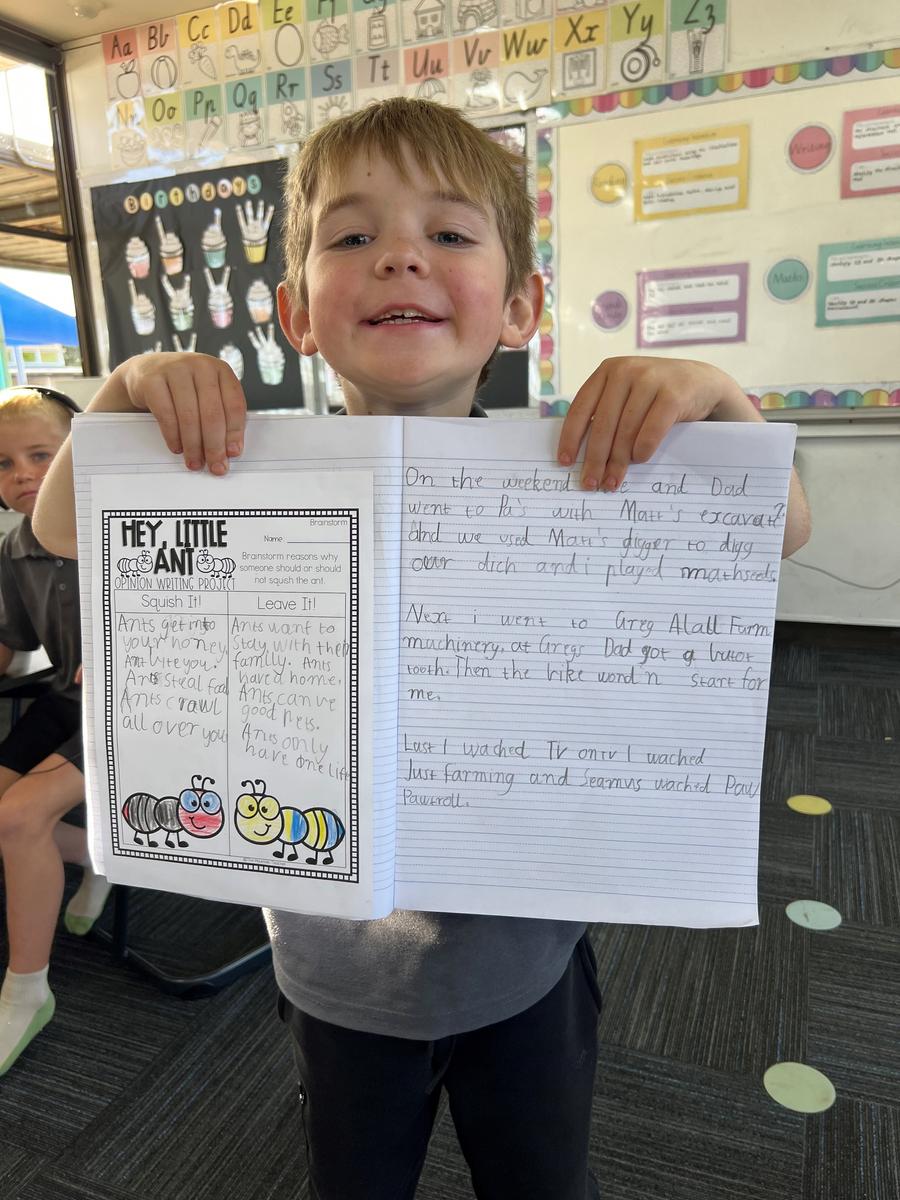 Aa
Bb
Cc
Dd
Ee
Uu
Vv
Ww
Xx
Yy
Zz
Oo
Pp
Qq
Rr
Ss
Tt
Birthdays
Writing
Maths
Brainstorm
HEY, LITTLE
ANT
Name:
OPINION WRITING PROJECT
Brainstorm reasons why
someone should or should
not squish the ant.
Squish It!
Leave It!
Ants get into
your honey
Ant bite you.
Ants steal food
Ants crawl
all over you
Ants want to
stay with their
family. Ants
have a home.
Ants can be
good pets.
Ants only
have one life
On the weekend and Dad
went to Pa's with Matt's
and we used Matt's digger to digg
our dich and i played mathseeds.
Next i went to Greg Alall Furm
machinery. at Gregs Dad got a
tooth. Then the bike word n start for
me.
Last I wached TV on tv I wached
Just farming and Seamus wached Paw
Pawtroll.